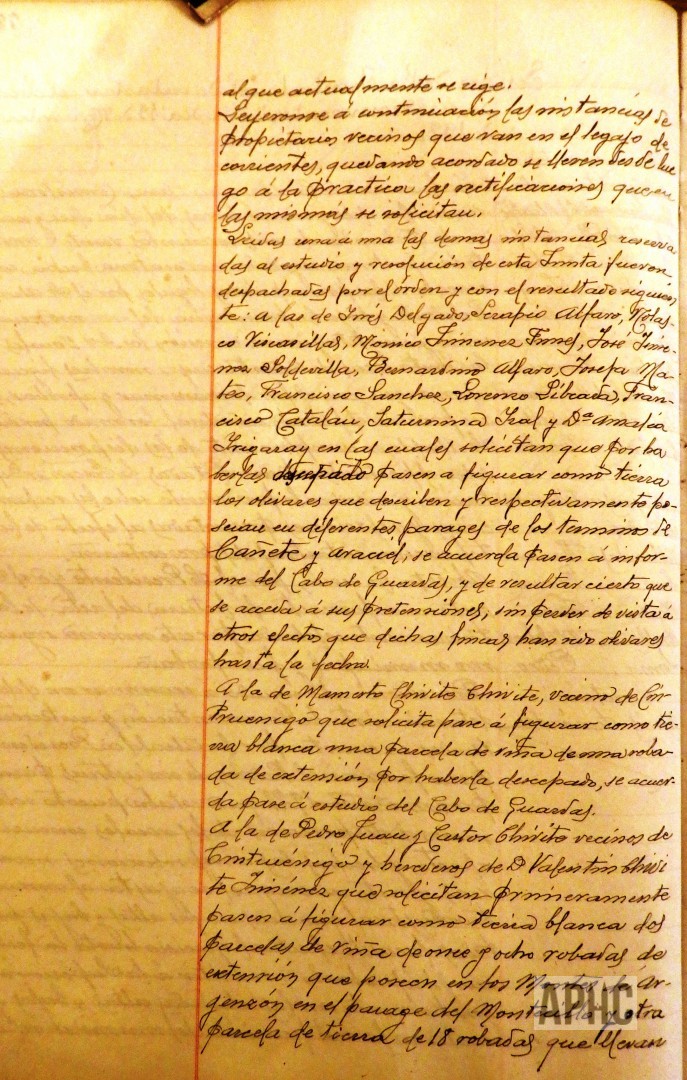 al que actualmente se rige.
Leyeronse á continuación las instancias de
propietarios vecinos que van en el legajo de
corrientes, quedando acordado se lleven desde lue
go á la practica las rectificaciones que en
las mismas se solicitan.
Leidas una á una las demas instancias reserva
das al estudio y resolución de esta Junta fueron
despachadas por el órden y con el resultado siguien
te: a las de Inés Delgado, Serapio Alfaro, Nolas-
co Viscasillas, Mónico Jimenez Funes, José Jime-
nez Soldevilla, Bernardino Alfaro, Josefa Ma-
teo, Francisco Sanchez, Lorenzo Librada, Fran-
cisco Catalán, Saturnina Iral y Dª Amalia
Irigaray en las cuales solicitan que por ha
berlas pasen a figurar como tierra
los olivares que describen y respectivamente po-
seian en diferentes parages de los terminos de
Cañete y Araciel, se acuerda pasen á infor-
me del Cabo de Guardas, y de resultar cierto que
se acceda á sus pretensiones, sin perder de vista á
otros efectos que dichas fincas han sido olivares
hasta la fecha.
A la de Mamerto Chivite Chivite, vecino de Cin-
truenigo que solicita pase á figurar como tie-
rra blanca una parcela de viña de una roba-
da de extensión por haberla descepado, se acuer-
da pase á estudio del Cabo de Guardas.
A la de Pedro Juan y Castor Chivite vecinos de
Cintruénigo y herederos de D. Valentin Chivi
te Jiménez que solicitan primeramente
pasen á figurar como tierra blanca dos
parcelas de viña de once y ocho robadas de
extensión que poseen en los Montes de Ar-
genzón en el parage del Montecillo y otra
parcela de tierra de 18 robadas que llevan
APHC